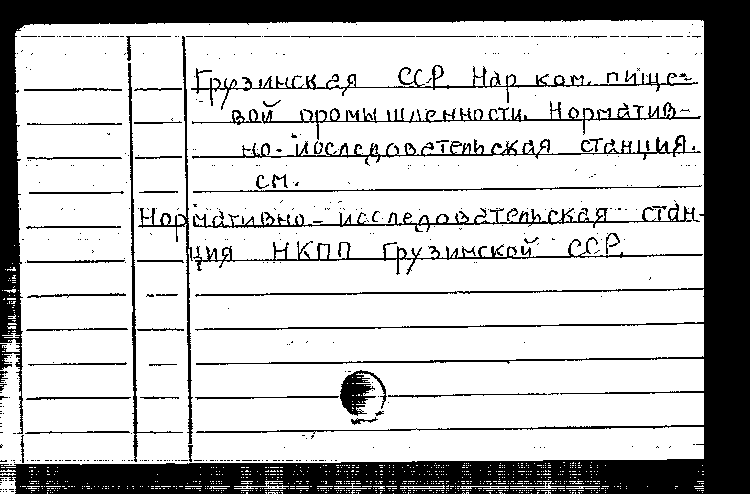 Грузинская ССР. Нар. ком. пище-
вой промышленности. Норматив-
но-исследовательская станция.
см.
Нормативно-исследовательская стан-
ция НКПП Грузинской ССР.